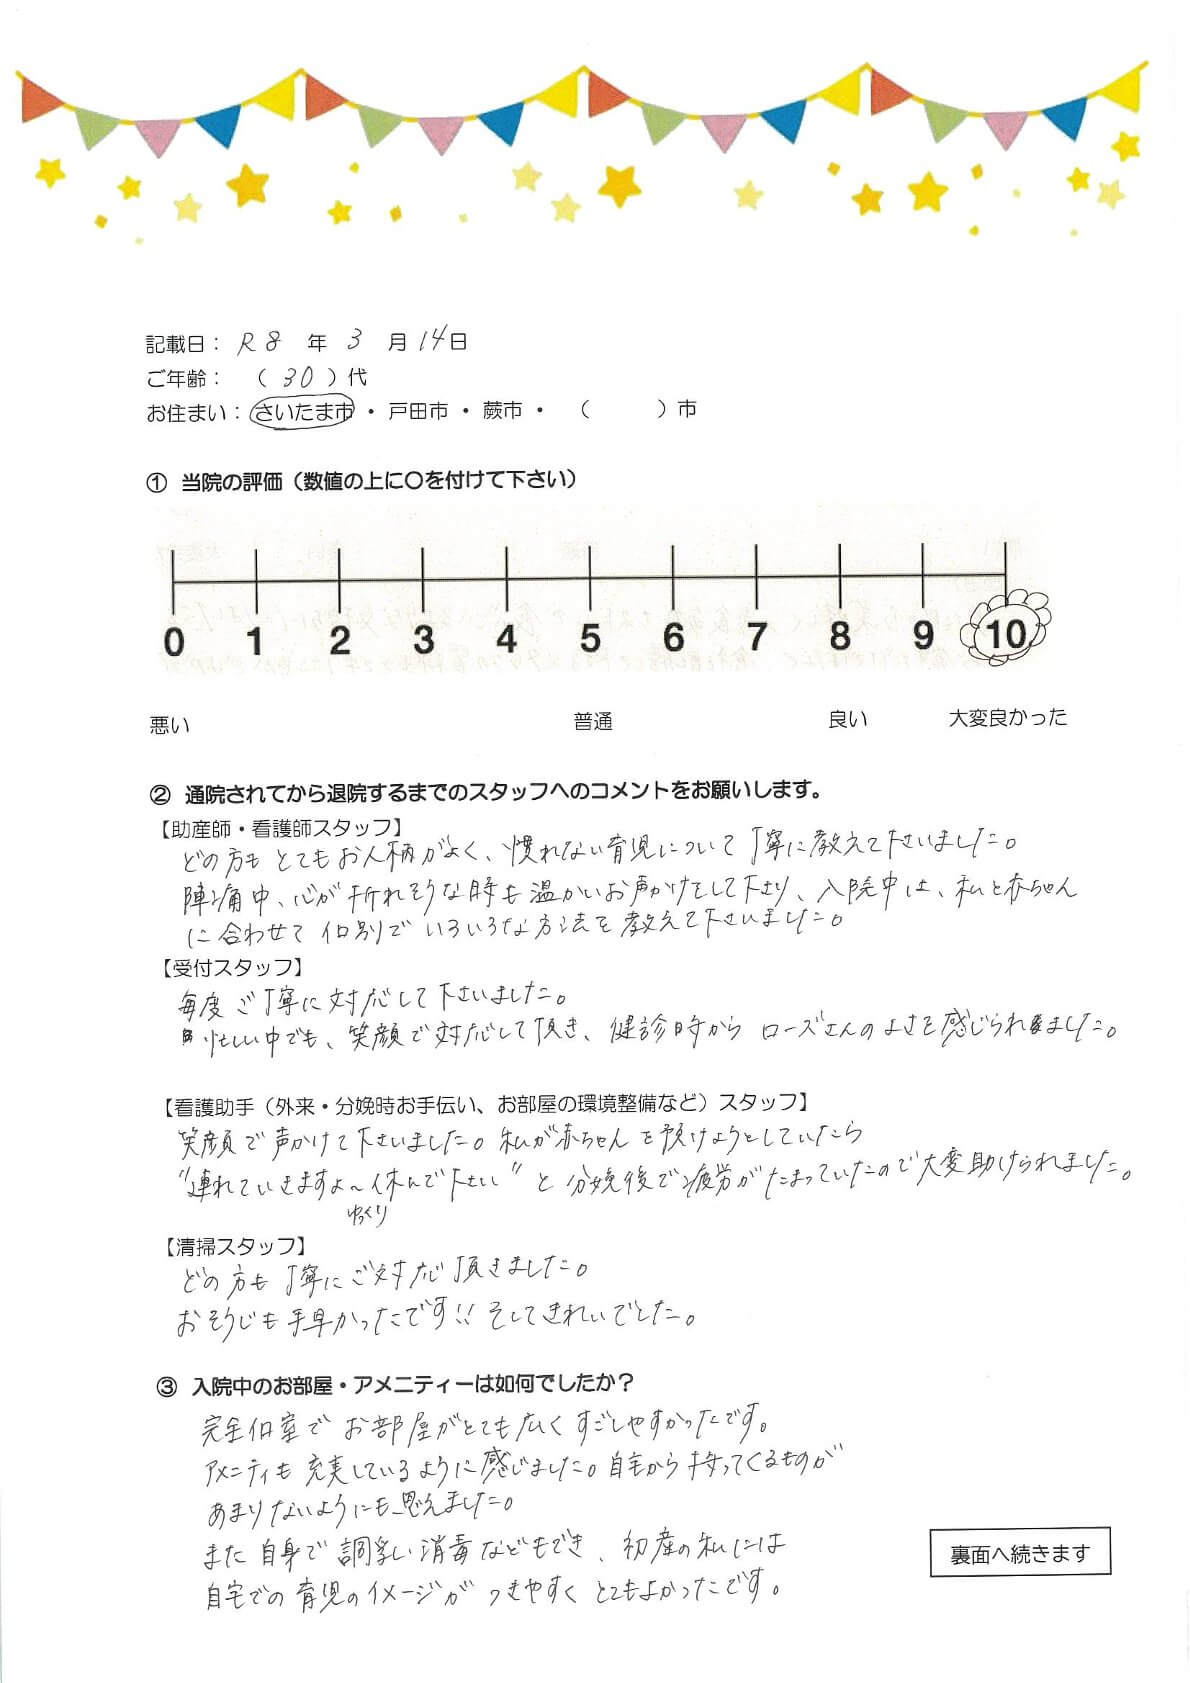 記載日： R8 年 3 月 14日
ご年齢： （ 30 ）代
お住まい： さいたま市 ・ 戸田市 ・ 蕨市 ・ （ ）市
① 当院の評価（数値の上に〇を付けて下さい）
0 1 2 3 4 5 6 7 8 9 10
悪い 普通 良い 大変良かった
② 通院されてから退院するまでのスタッフへのコメントをお願いします。
【助産師・看護師スタッフ】
どの方も とてもお人柄がよく、慣れない育児について丁寧に教えて下さいました。
陣痛中、心が折れそうな時も温かいお声かけをして下さり、入院中は、私と赤ちゃん
に合わせて個別でいろいろな方法を教えて下さいました。
【受付スタッフ】
毎度ご丁寧に対応して下さいました。
忙しい中でも、笑顔で対応して頂き、健診時から ローズさんのよさを感じられました。
【看護助手（外来・分娩時お手伝い、お部屋の環境整備など）スタッフ】
笑顔で声かけて下さいました。私が赤ちゃんを預けようとしていたら
"連れていきますよ～休んで下さい" と 分娩後で疲労がたまっていたので大変助けられました。
ゆっくり
【清掃スタッフ】
どの方も丁寧にご対応頂きました。
おそうじも手早かったです!! そしてきれいでした。
③ 入院中のお部屋・アメニティーは如何でしたか？
完全個室で お部屋がとても広く すごしやすかったです。
アメニティも 充実しているように感じました。自宅から持ってくるものが
あまりないようにも思えました。
また 自身で 調乳い 消毒などもでき、初産の私には
自宅での育児のイメージが つきやすく とてもよかったです。
裏面へ続きます